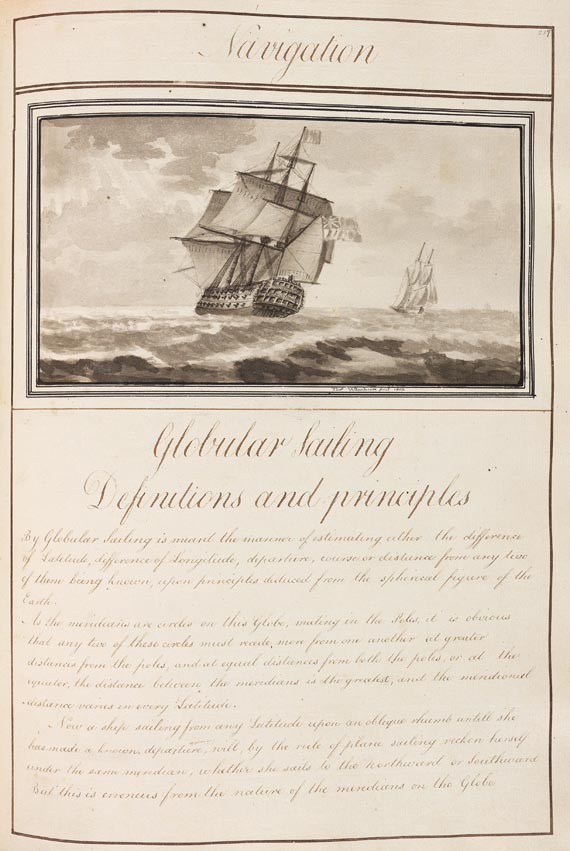 Navigation
Globular Sailing
Definitions and principles
By Globular Sailing is meant the manner of estimating either the difference
of Latitude, difference of Longitude, departure, course or distance from any two
of them being known, upon principles deduced from the spherical figure of the
Earth.
As the meridians are circles on this Globe, meeting in the Poles, it is obvious
that any two of these circles must recede more from one another at greater
distances from the poles, and at equal distances from both the poles, or at the
equator, the distance between the meridians is the greatest, and the meridional
distance varies in every Latitude.
Now a ship sailing from any Latitude upon an oblique rhumb untill she
has made a known departure, will, by the rule of plane sailing reckon herself
under the same meridian, whether she sails to the Northward or Southward
But this is erroneus from the nature of the meridians on the Globe